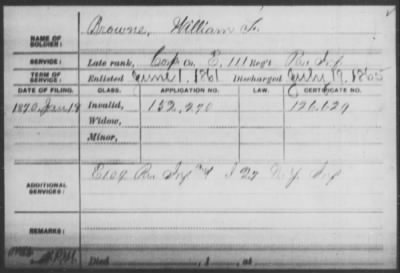 Browne, William
NAME OF SOLDIER:
SERVICE: Late rank, Co. E, 111 Reg't Pa. Inf
TERM OF SERVICE: Enlisted June 1, 1861 Discharged July 19, 1865
DATE OF FILING. CLASS. APPLICATION NO. LAW. CERTIFICATE NO.
1870, Jan 19 Invalid, 152,290 126,629
Widow,
Minor,
ADDITIONAL SERVICES: E 109 Pa. Inf & I 27 N.Y. Inf
REMARKS:
Died , 1 , at